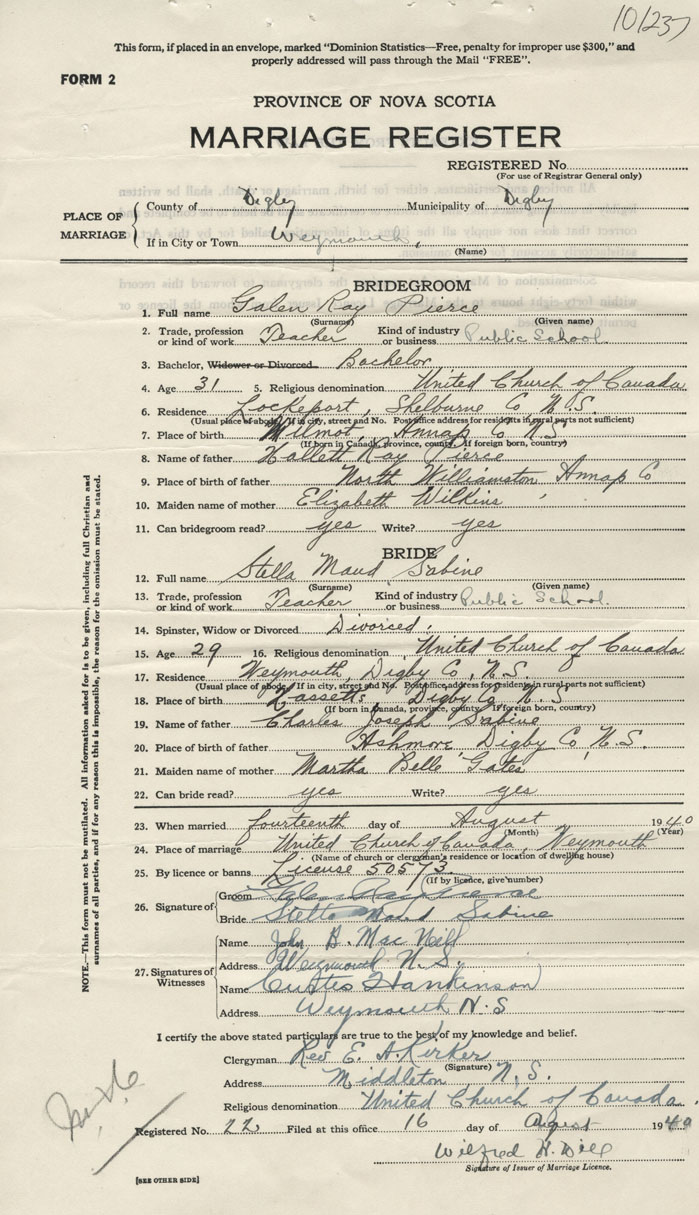 10/237
This form, if placed in an envelope, marked "Dominion Statistics—Free, penalty for improper use $300," and
properly addressed will pass through the Mail "FREE".
FORM 2
PROVINCE OF NOVA SCOTIA
MARRIAGE REGISTER
REGISTERED No.
(For use of Registrar General only)
PLACE OF MARRIAGE
County of Digby Municipality of Digby
If in City or Town Weymouth,
(Name)
BRIDEGROOM
1. Full name Galen Ray Pierce
(Surname) (Given name)
2. Trade, profession or kind of work Teacher Kind of industry or business Public School.
3. Bachelor, Widower or Divorced Bachelor
4. Age 31 5. Religious denomination United Church of Canada
6. Residence Lockeport, Shelburne Co N.S.
(Usual place of abode. If in city, street and No. Post office address for residents in rural parts not sufficient)
7. Place of birth Wilmot, Annap Co N.S.
(If born in Canada, province, county. If foreign born, country)
8. Name of father Hallett Ray Pierce
9. Place of birth of father North Williamston Annap Co
10. Maiden name of mother Elizabeth Wilkins
11. Can bridegroom read? yes Write? yes
BRIDE
12. Full name Stella Maud Sabine
(Surname) (Given name)
13. Trade, profession or kind of work Teacher Kind of industry or business Public School.
14. Spinster, Widow or Divorced Divorced.
15. Age 29 16. Religious denomination United Church of Canada
17. Residence Weymouth, Digby Co, N.S.
(Usual place of abode. If in city, street and No. Post office address for residents in rural parts not sufficient)
18. Place of birth Hassetts, Digby Co N.S
(If born in Canada, province, county. If foreign born, country)
19. Name of father Charles Joseph Sabine
20. Place of birth of father Ashmore, Digby Co, N.S.
21. Maiden name of mother Martha Belle Gates
22. Can bride read? yes Write? yes
23. When married fourteenth day of August 1940
(Month) (Year)
24. Place of marriage United Church of Canada, Weymouth
(Name of church or clergyman's residence or location of dwelling house)
25. By licence or banns License 50573
(If by licence, give number)
26. Signature of
Groom Galen Ray Pierce
Bride Stella Maud Sabine
27. Signatures of Witnesses
Name John B. Mac Neill
Address Weymouth N.S.
Name Curtis Hankinson
Address Weymouth N.S
I certify the above stated particulars are true to the best of my knowledge and belief.
Clergyman Rev E. A. Kirker
(Signature)
Address Middleton N.S.
Religious denomination United Church of Canada.
Registered No. 22 Filed at this office 16 day of August 1940
Wilfred H. Dill
Signature of Issuer of Marriage Licence.
[SEE OTHER SIDE]
NOTE.—This form must not be mutilated. All information asked for is to be given, including full Christian and
surnames of all parties, and if for any reason this is impossible, the reason for the omission must be stated.